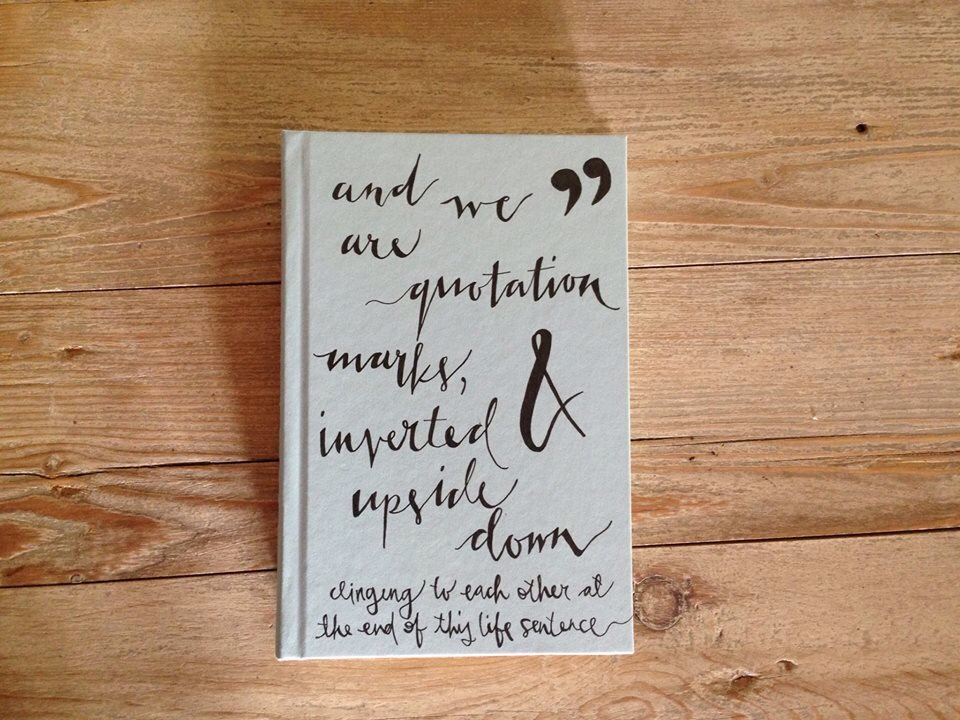 and we ”
are
quotation
marks,
inverted &
upside
down
clinging to each other at
the end of this life sentence